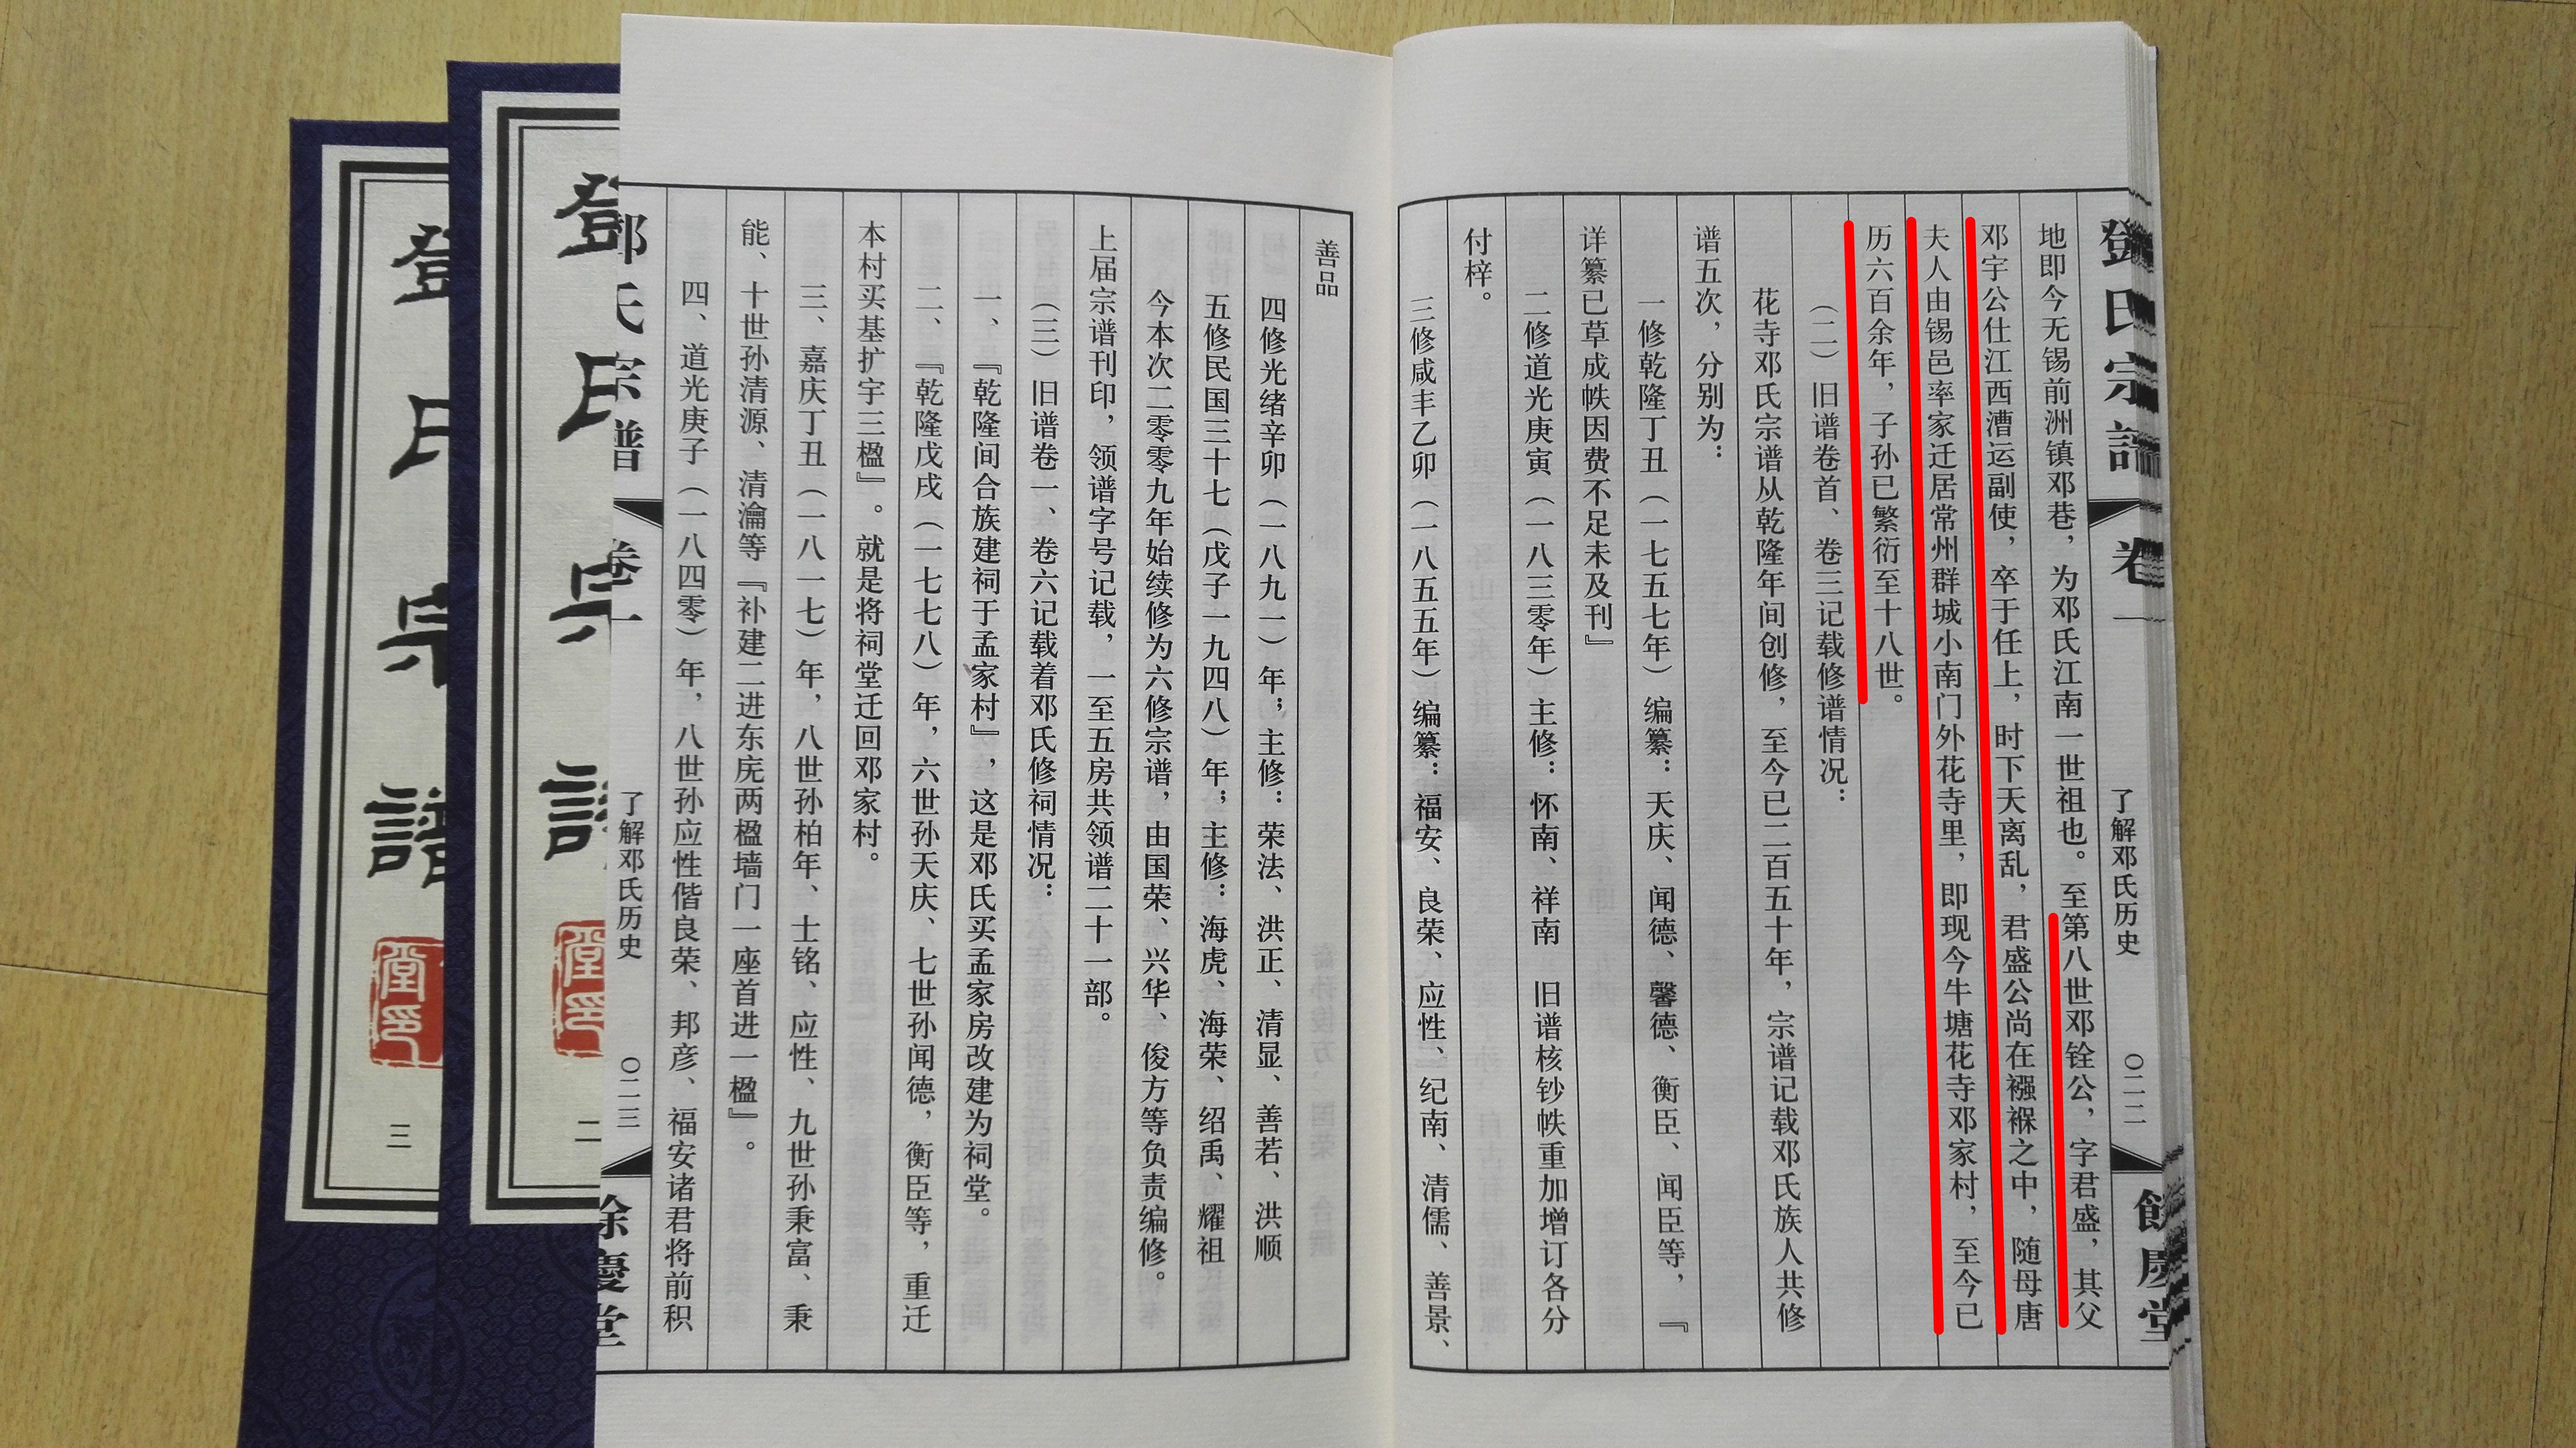 鄧氏宗譜
卷一
了解邓氏历史
〇二二
餘慶堂
地即今无锡前洲镇邓巷，为邓氏江南一世祖也。至第八世邓铨公，字君盛，其父
邓宇公仕江西漕运副使，卒于任上，时下天离乱，君盛公尚在襁褓之中，随母唐
夫人由锡邑率家迁居常州群城小南门外花寺里，即现今牛塘花寺邓家村，至今已
历六百余年，子孙已繁衍至十八世。
（二）旧谱卷首、卷三记载修谱情况：
花寺邓氏宗谱从乾隆年间创修，至今已二百五十年，宗谱记载邓氏族人共修
谱五次，分别为：
一修乾隆丁丑（一七五七年）编纂：天庆、闻德、馨德、衡臣、闻臣等，『
详纂已草成帙因费不足未及刊』
二修道光庚寅（一八三零年）主修：怀南、祥南 旧谱核钞帙重加增订各分
付梓。
三修咸丰乙卯（一八五五年）编纂：福安、良荣、应性、纪南、清儒、善景、
善品
四修光绪辛卯（一八九一）年；主修：荣法、洪正、清显、善若、洪顺
五修民国三十七（戊子一九四八）年；主修：海虎、海荣、绍禹、耀祖
今本次二零零九年始续修为六修宗谱，由国荣、兴华、俊方等负责编修。
上届宗谱刊印，领谱字号记载，一至五房共领谱二十一部。
（三）旧谱卷一、卷六记载着邓氏修祠情况：
一、『乾隆间合族建祠于孟家村』，这是邓氏买孟家房改建为祠堂。
二、『乾隆戊戌（一七七八）年，六世孙天庆、七世孙闻德，衡臣等，重迁
本村买基扩宇三楹』。就是将祠堂迁回邓家村。
三、嘉庆丁丑（一八一七）年，八世孙柏年、士铭、应性、九世孙秉富、秉
能、十世孙清源、清瀹等『补建二进东庑两楹墙门一座首进一楹』。
四、道光庚子（一八四零）年，八世孙应性偕良荣、邦彦、福安诸君将前积
鄧氏宗譜
卷一
了解邓氏历史
〇二三
餘慶堂
鄧氏宗譜
二
鄧氏宗譜
堂印
三